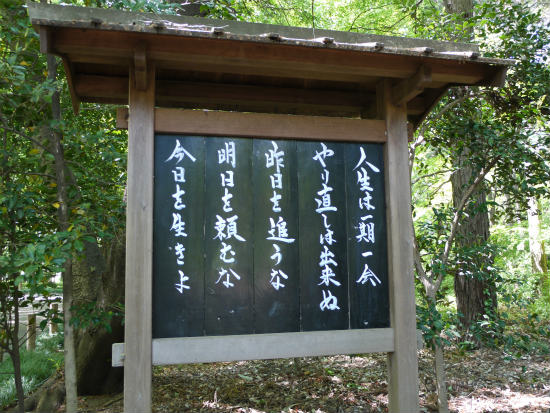 人生は一期一会
やり直しは出来ぬ
昨日を追うな
明日を頼むな
今日を生きよ